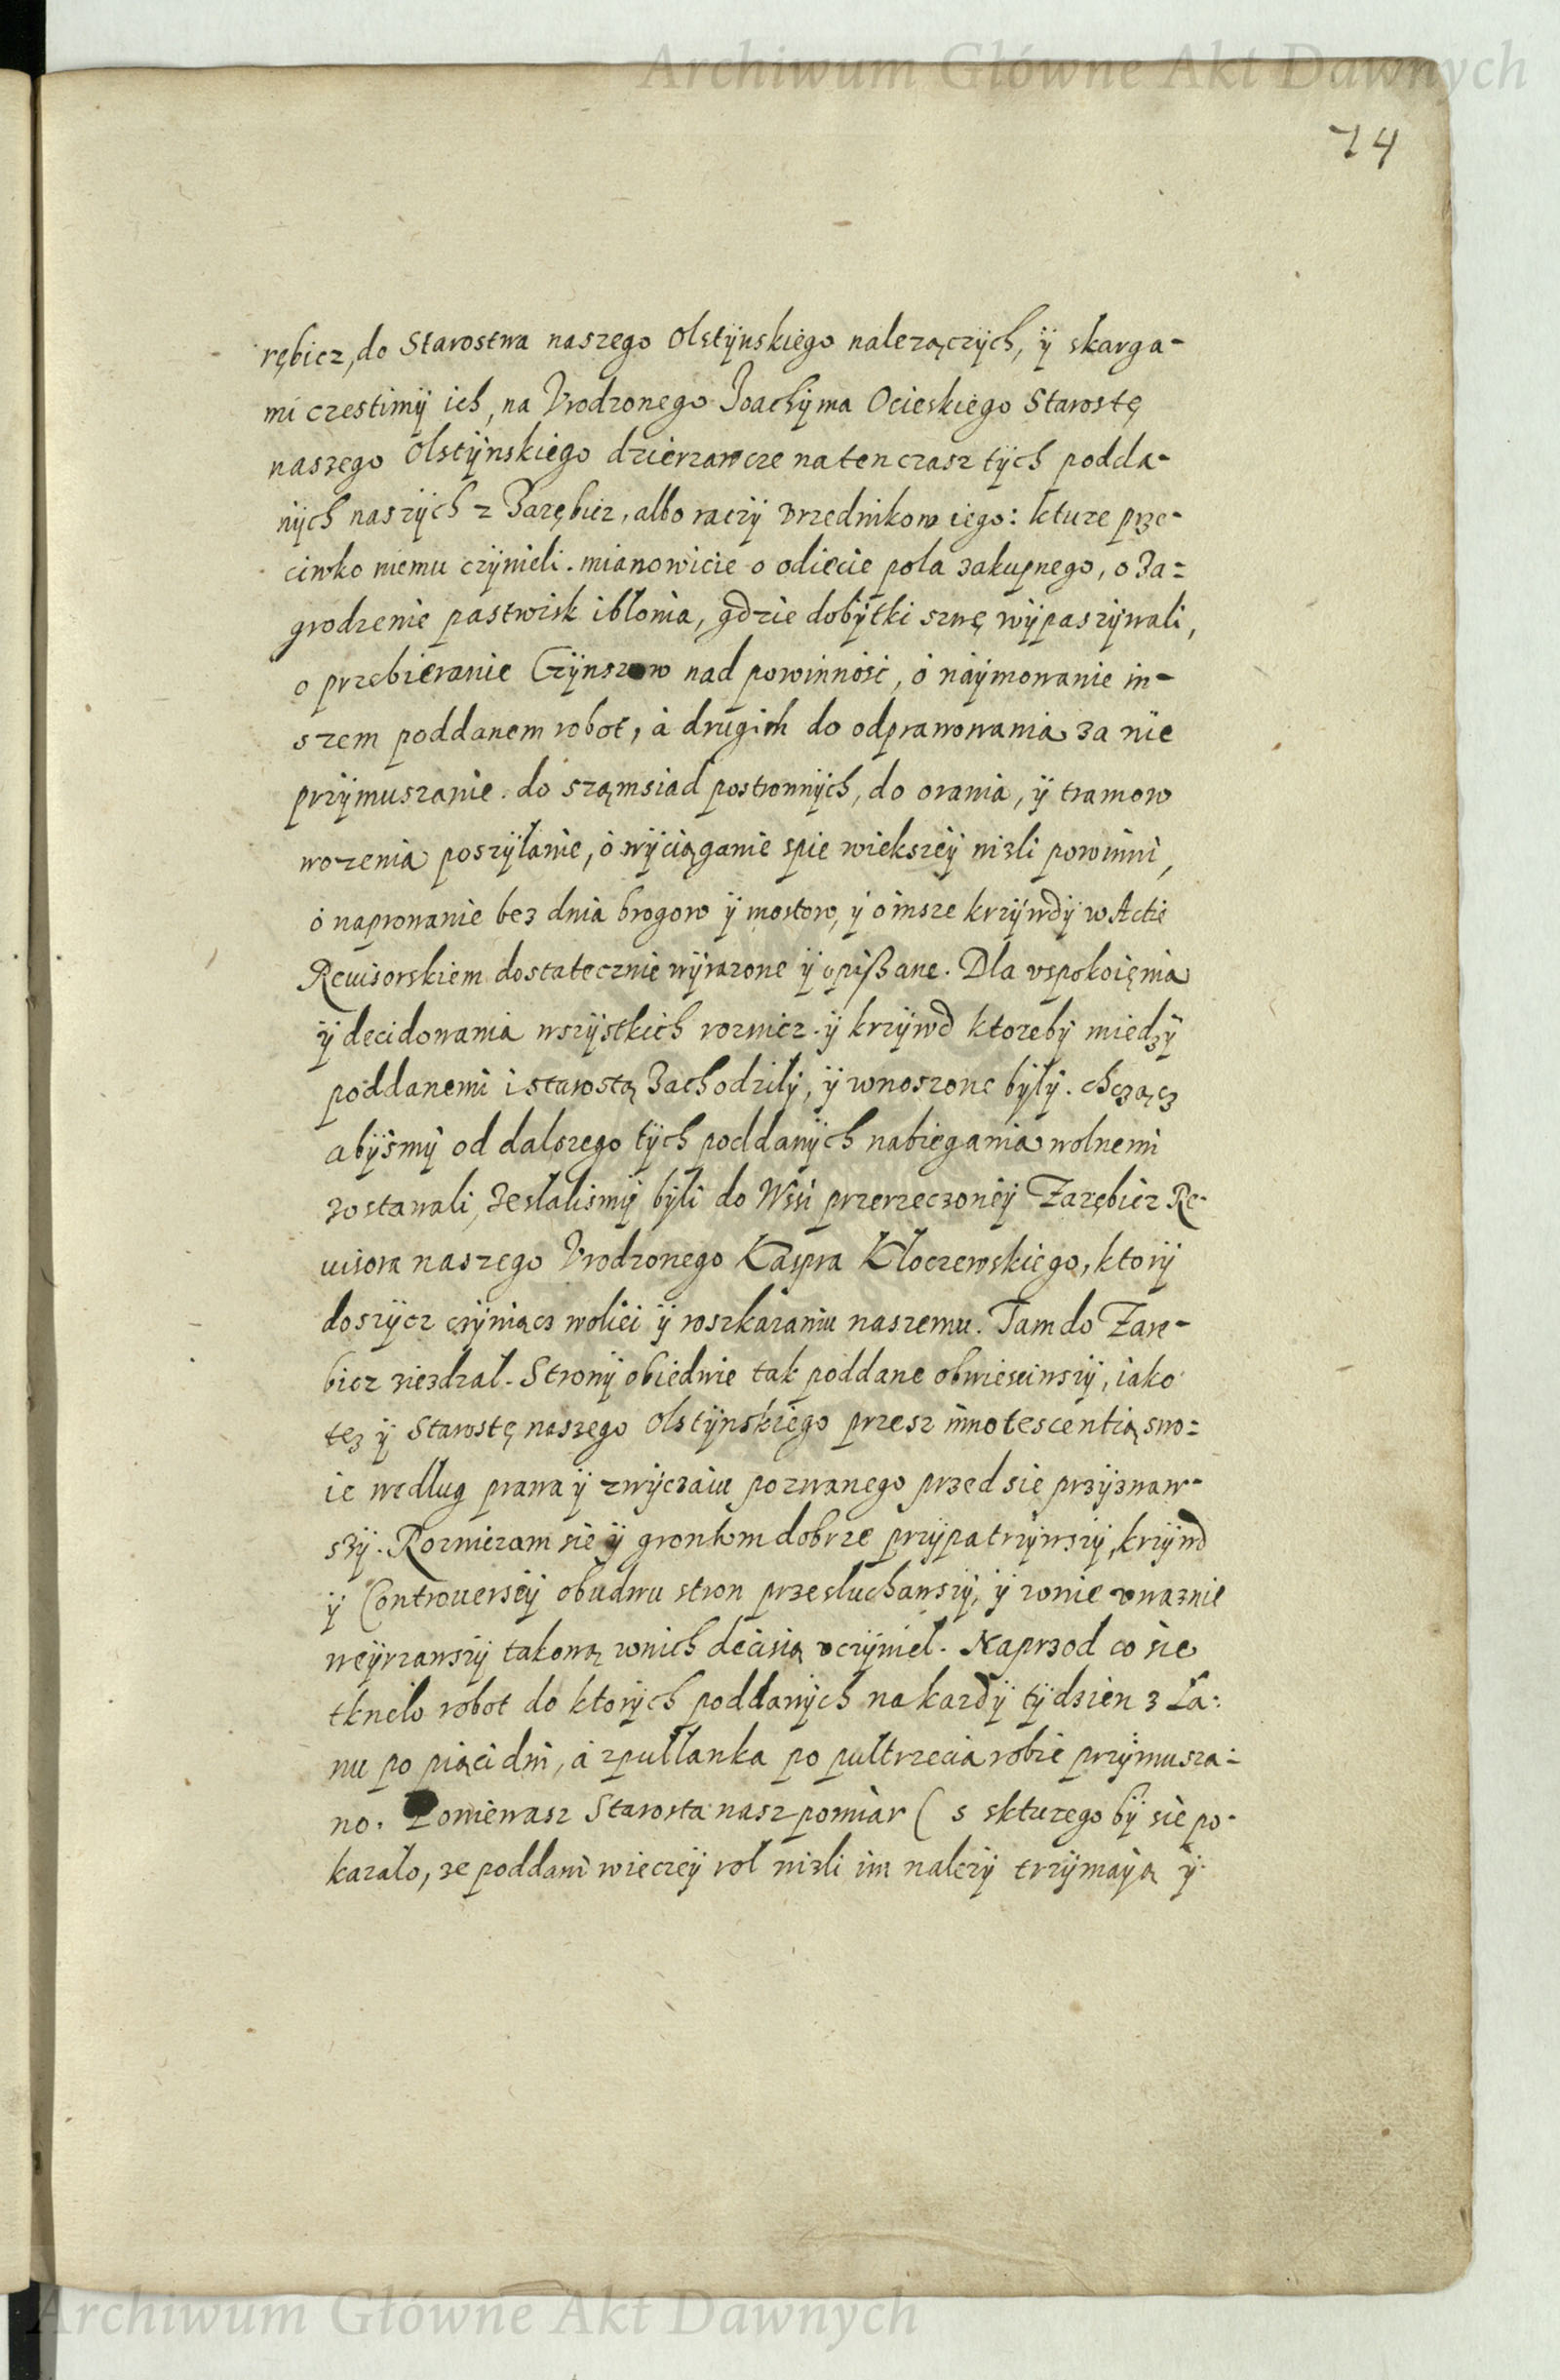 Archiwum Główne Akt Dawnych
74
rębicz, do Starostwa naszego Olstÿnskiego nalezączÿch, ÿ skarga-
mi czestimÿ ich, na Vrodzonego Joachÿma Ocieskiego Starostę
naszego Olstÿnskiego dzierzawcze na ten czasz tÿch podda-
nÿch naszÿch z Zarębicz, albo raczÿ vrzednikow iego: kture prze-
ciwko niemu czÿnieli. mianowicie o odiecie pola zakupnego, o Za=
grodzenie pastwisk i błonia, gdzie dobÿtki szwę wÿpaszÿwali,
o przebieranie Czÿnszow nad powinnosc, o naÿmowanie in-
szem poddanem robot, a drugich do odprawowania za nie
przÿmuszanie. do sząmsiad postronnÿch, do orania, ÿ tramow
wozenia poszÿłanie, o wÿciąganie spie wiekszeÿ nizli powinni,
o naprowanie bez dnia brogow ÿ mostow, ÿ o insze krzÿwdÿ w Actie
Reuisorskiem dostatecznie wÿrazone ÿ opißane. Dla vspokoięnia
ÿ decidowania wszÿstkich roznicz. ÿ krzÿwd ktorebÿ miedzÿ
poddanemi i starostą Zachodzilÿ, ÿ wnoszone bÿłÿ. chcącz
abÿsmÿ od dalszego tÿch poddanÿch nabiegania wolnemi
zostawali, Zeslalismÿ bÿli do Wsi przerzeczoneÿ Zarębicz Re-
uisora naszego Vrodzonego Kaspra Kłoczewskiego, ktorÿ
doszÿcz czÿniącz woliei ÿ roszkazaniu naszemu. Tam do Zare-
bicz ziezdzal. Stronÿ obiedwie tak poddane obwiesciwszÿ, iako
tez ÿ Starostę naszego Olstÿnskiego przesz innotescentią swo=
ie wedlug prawa ÿ zwÿczaiu pozwanego przed sie przÿznaw-
szÿ. Roznicam sie ÿ grontom dobrze przÿpatrzÿwszÿ, krzÿwd
ÿ Controuersiÿ obudwu stron przesluchawszÿ, ÿ w nie vwaznie
weÿrzawszÿ takową w nich decisią vczÿniel. Naprzod co sie
tknelo robot do ktorÿch poddanÿch na kazdÿ tÿdzien z La=
nu po piąci dni, a z pułlanka po pułtrzecia robie przÿmusza=
no. Poniewasz Starosta nasz pomiar ( s skturego bÿ sie po-
kazalo, ze poddani wieczeÿ rol nizli im nalezÿ trzÿmaÿą ÿ
Archiwum Główne Akt Dawnych